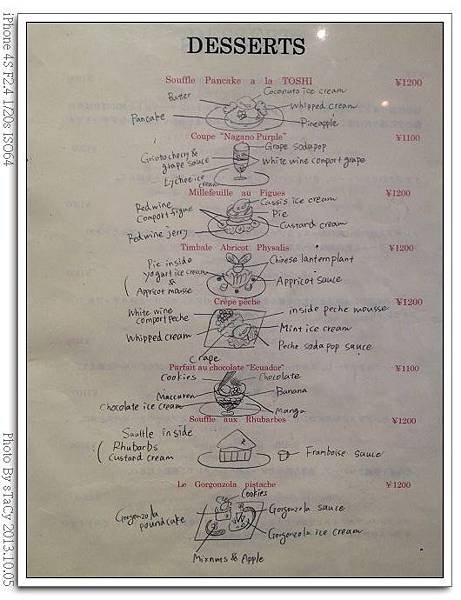 DESSERTS
Souffle Pancake a la TOSHI ¥1200
Butter
Coconuts ice cream
Whipped cream
Pancake
Pineapple
Coupe "Nagano Purple" ¥1100
Griotocherry &
grape sauce
Grape sodapop
White wine comport grape
Lychee ice
cream
Millefeuille au Figues ¥1200
Red wine
Comport figue
Cassis ice cream
Pie
Red wine jerry
Custard cream
Timbale Abricot Physalis ¥1200
Pie inside
yogurt ice cream
&
Apricot mousse
Chinese lantern plant
Appricot sauce
Crêpe pêche ¥1200
White wine
comport peche
inside peche mousse
Mint ice cream
Whipped cream
Peche soda pop sauce
Crape
Parfait au chocolate "Ecuador" ¥1100
Cookies
Chocolate
Maccaron
Banana
Chocolate ice cream
Mango
Souffle aux Rhubarbes ¥1200
Saufle inside
( Rhubarbs
Custard cream
Framboise sauce
Le Gorgonzola pistache ¥1200
Cookies
Gorgonzola
poundcake
Gorgonzola sauce
Gorgonzola ice cream
Mixnuts & Apple
iPhone 4S F2.4 1/20s ISO64
Photo By sTaCy 2013.10.05